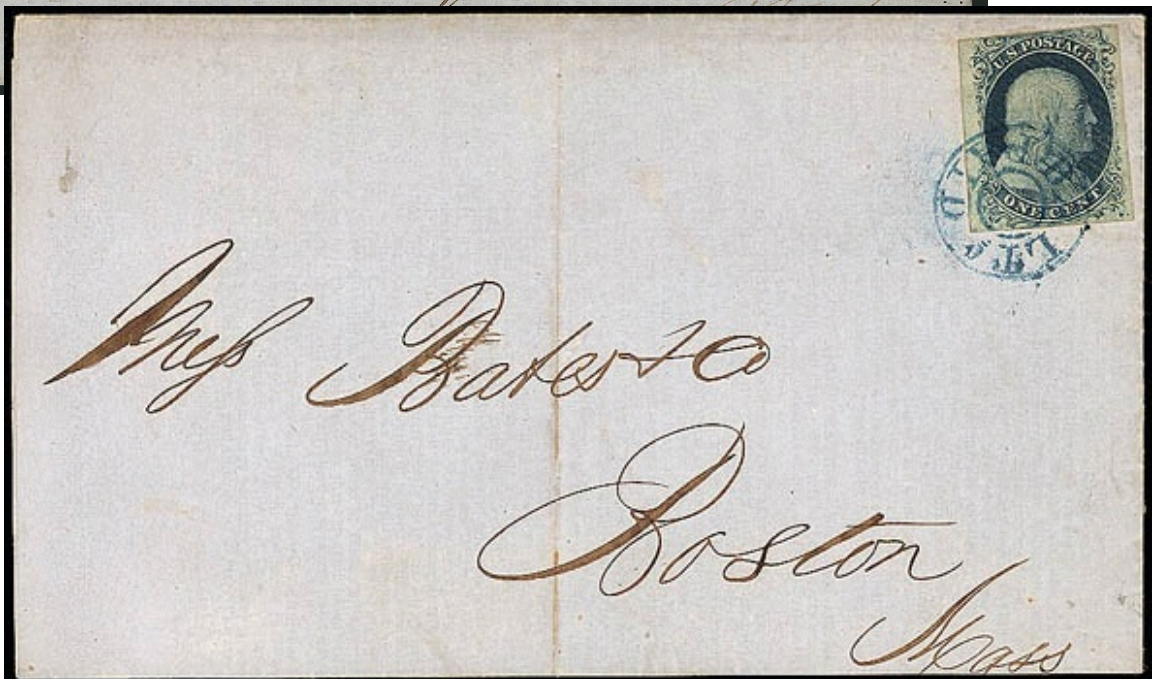 U.S. POSTAGE
ONE CENT
Mess Bates & Co
Boston
Mass